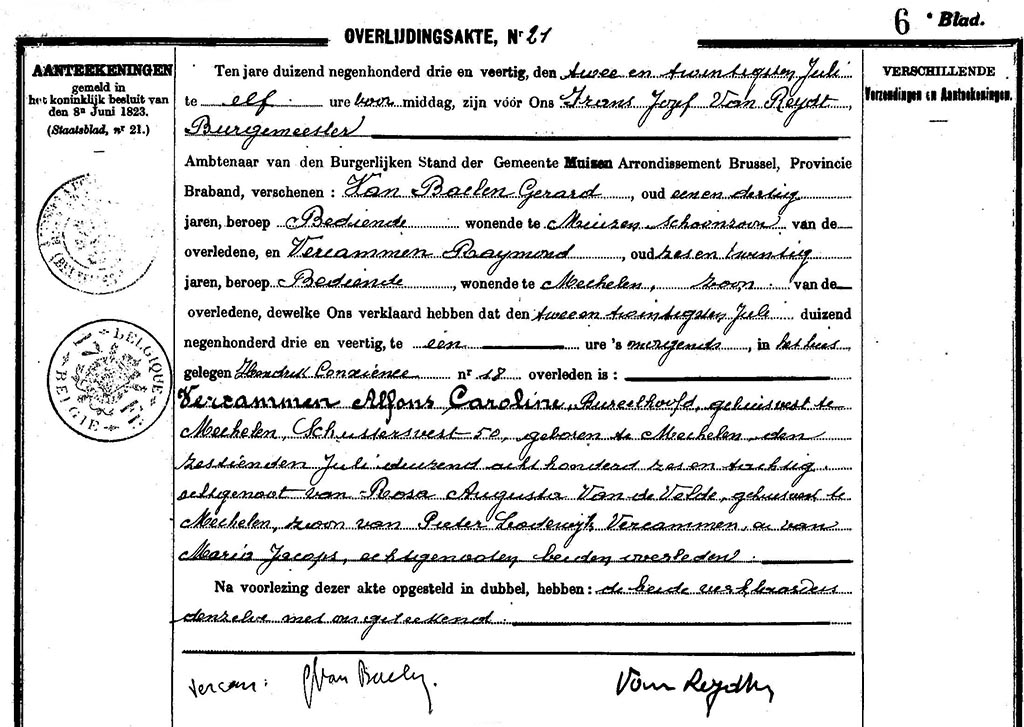 6e Blad.
OVERLIJDINGSAKTE, Nr 21
AANTEEKENINGEN
gemeld in
het koninklijk besluit van
den 8n Juni 1823.
(Staatsblad, nr 21.)
Ten jare duizend negenhonderd drie en veertig, den twee en twintigsten Juli
te elf ure voor middag, zijn vóór Ons Frans Jozef Van Reydt,
Burgemeester
Ambtenaar van den Burgerlijken Stand der Gemeente Muizen Arrondissement Brussel, Provincie
Braband, verschenen : Van Baelen Gerard, oud eenen dertig
jaren, beroep Bediende wonende te Muizen, schoonzoon van de
overledene, en Vercammen Raymond, oud zes en twintig
jaren, beroep Bediende, wonende te Mechelen, zoon van de
overledene, dewelke Ons verklaard hebben dat den twee en twintigsten Juli duizend
negenhonderd drie en veertig, te een ure 's morgends, in het huis
gelegen Hendrik Concience nr 18 overleden is :
Vercammen Alfons Caroline, Bureelhoofd, gehuisvest te
Mechelen, Schuttersvest 50, geboren te Mechelen, den
zestienden Juli duizend acht honderd zes en tachtig
echtgenoot van Rosa Augusta Van de Velde, gehuisvest te
Mechelen, zoon van Pieter Lodewijk Vercammen, en van
Maria Jacops, echtgenooten beiden overleden.
Na voorlezing dezer akte opgesteld in dubbel, hebben : de beide verklaarders
denzelve met ons geteekend.
Vercam: GVan Baelen. Van Reydt
VERSCHILLENDE
Verzendingen en Aanteekeningen.
BELGIQUE
BELGIE